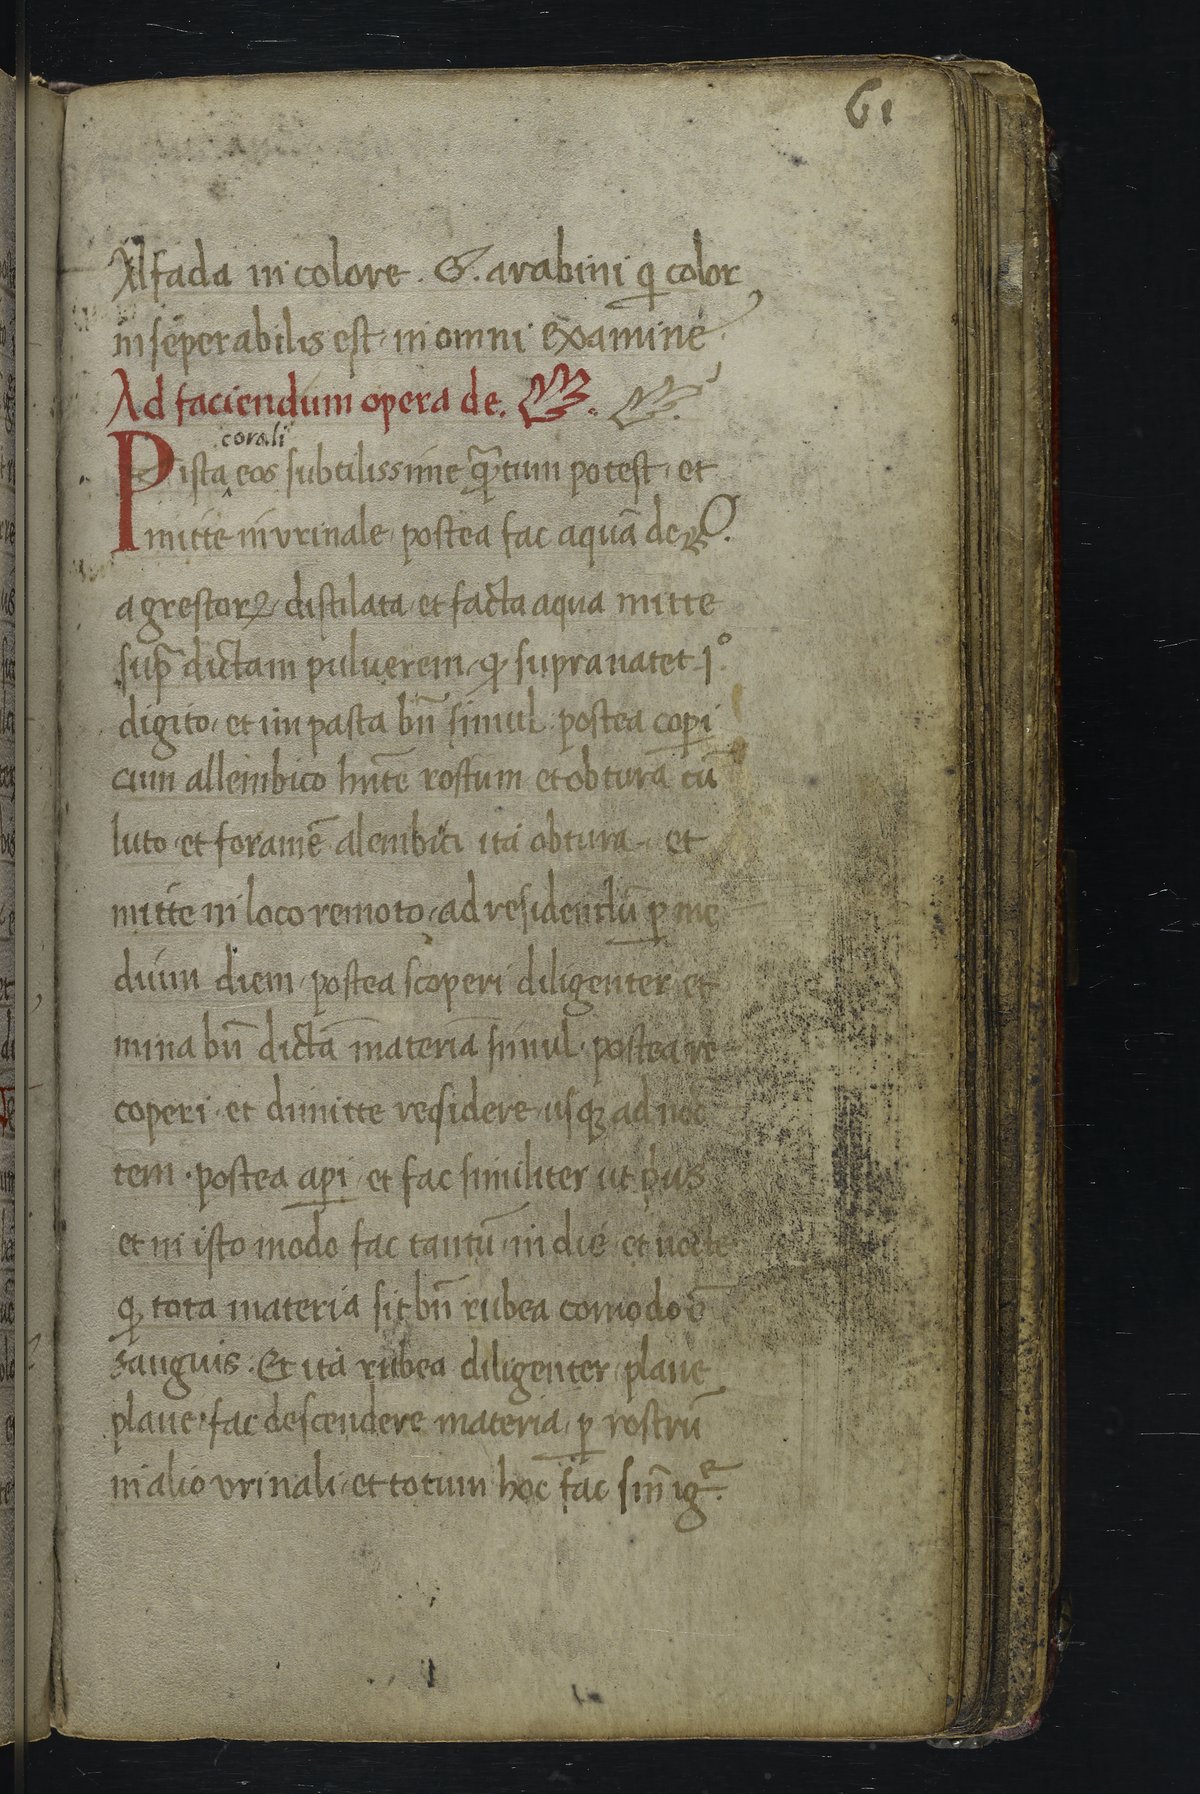 61
Alfada in colore. G. arabini q̣ color
inseperabilis est in omni examine
Ad faciendum opera de.
corali
Pista eos subtilissime qr̄tum potest et
mitte in vrinale postea fac aquā de
agrestorꝝ distilata et facta aqua mitte
sup̄ dictam pulverem qꝫ supranatet Jº
digito et impasta bn̄ simul postea coꝑi
cum allembico hn̄te rostum et obtura cū
luto et foramē alembici ita obtura et
mitte in loco remoto ad residendū ꝑ me
dium diem postea scoperi diligenter et
mina bn̄ dictā materiā simul postea re
coperi et dimitte residere usqꝫ ad noc
tem postea aꝑi et fac similiter ut pͥus
et in isto modo fac tantū in die et nocte
qꝫ tota materia sit bn̄ rubea comodo ē
sanguis. Et ita rubea diligenter plane
plane fac descendere materia ꝑ rostrū
in alio vrinali et totum hoc fac sin̄ igͤ.